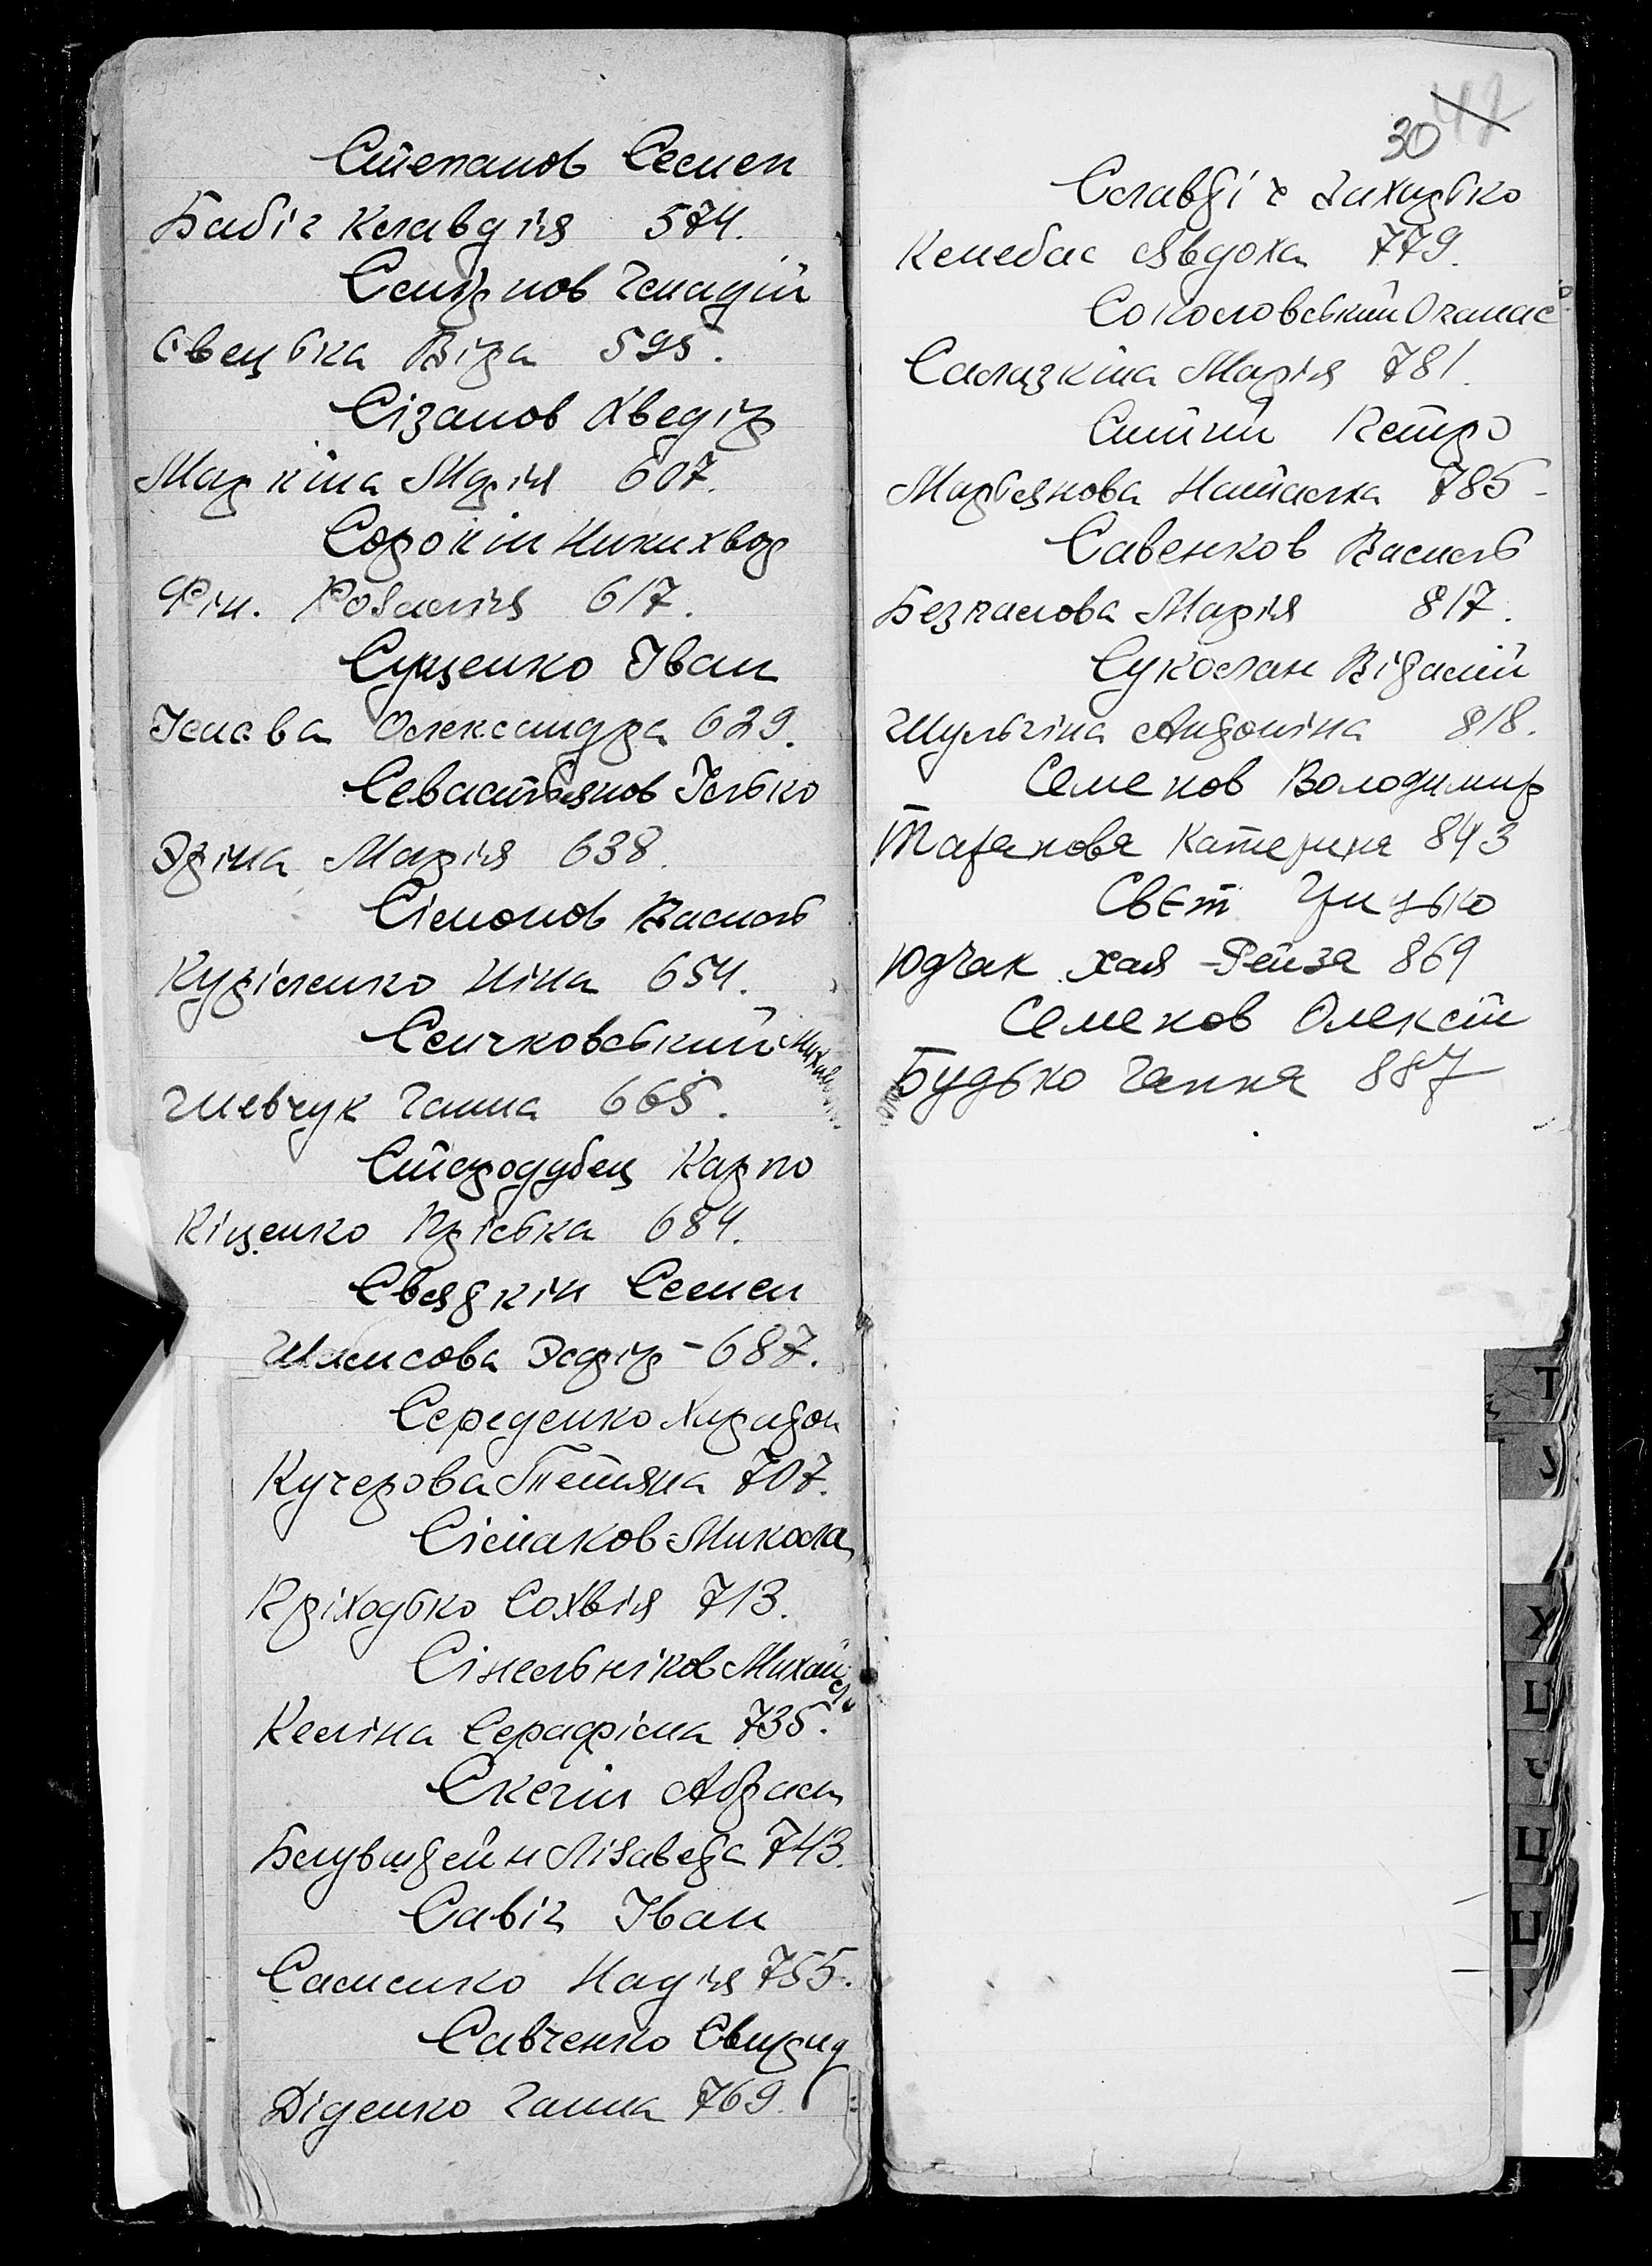 Степанов Семен
Бабіч Клавдія 574.
Смірнов Генадій
Свецька Віра 595.
Сізанов Хведір
Маркіна Марія 607.
Сорокін Никихвор
Фін. Розалія 617.
Сущенко Іван
Ісаєва Олександра 629.
Севастьянов Ілько
Эріна Марія 638.
Сімонов Василь
Куріленко Ніна 654.
Сенчковський
Шевчук Ганна 665.
Стародубец Карпо
Кіценко Пріська 684.
Святкін Семен
Эсфір - 687.
Середенко Харитон
Кучерова Тетяна 707.
Сімаков Микола
Пріходько Сохвія 713.
Сінельніков Михайло
Келіна Серафіма 735.
Скегін Абрам
Лізавета 743.
Савіч Іван
Саленко Надія 755.
Савченко Свирид
Діденко Ганна 769.
30 42
Славтіч Захарько
Келебас Явдоха 779.
Соколовський Опанас
Салазкіна Марія 781.
Ситий Петро
Мартьянова Наталка 785 -
Савенков Василь
Безпалова Марія 817.
Сукослан Віталій
Шульгіна Антоніна 818.
Семенов Володимир
Таранова Катерина 843
Свєт Грицько
Юдчак Хая - Рейза 869
Семенов Олексій
Будько Ганна 887
Т
У
Х
Ц
Ч